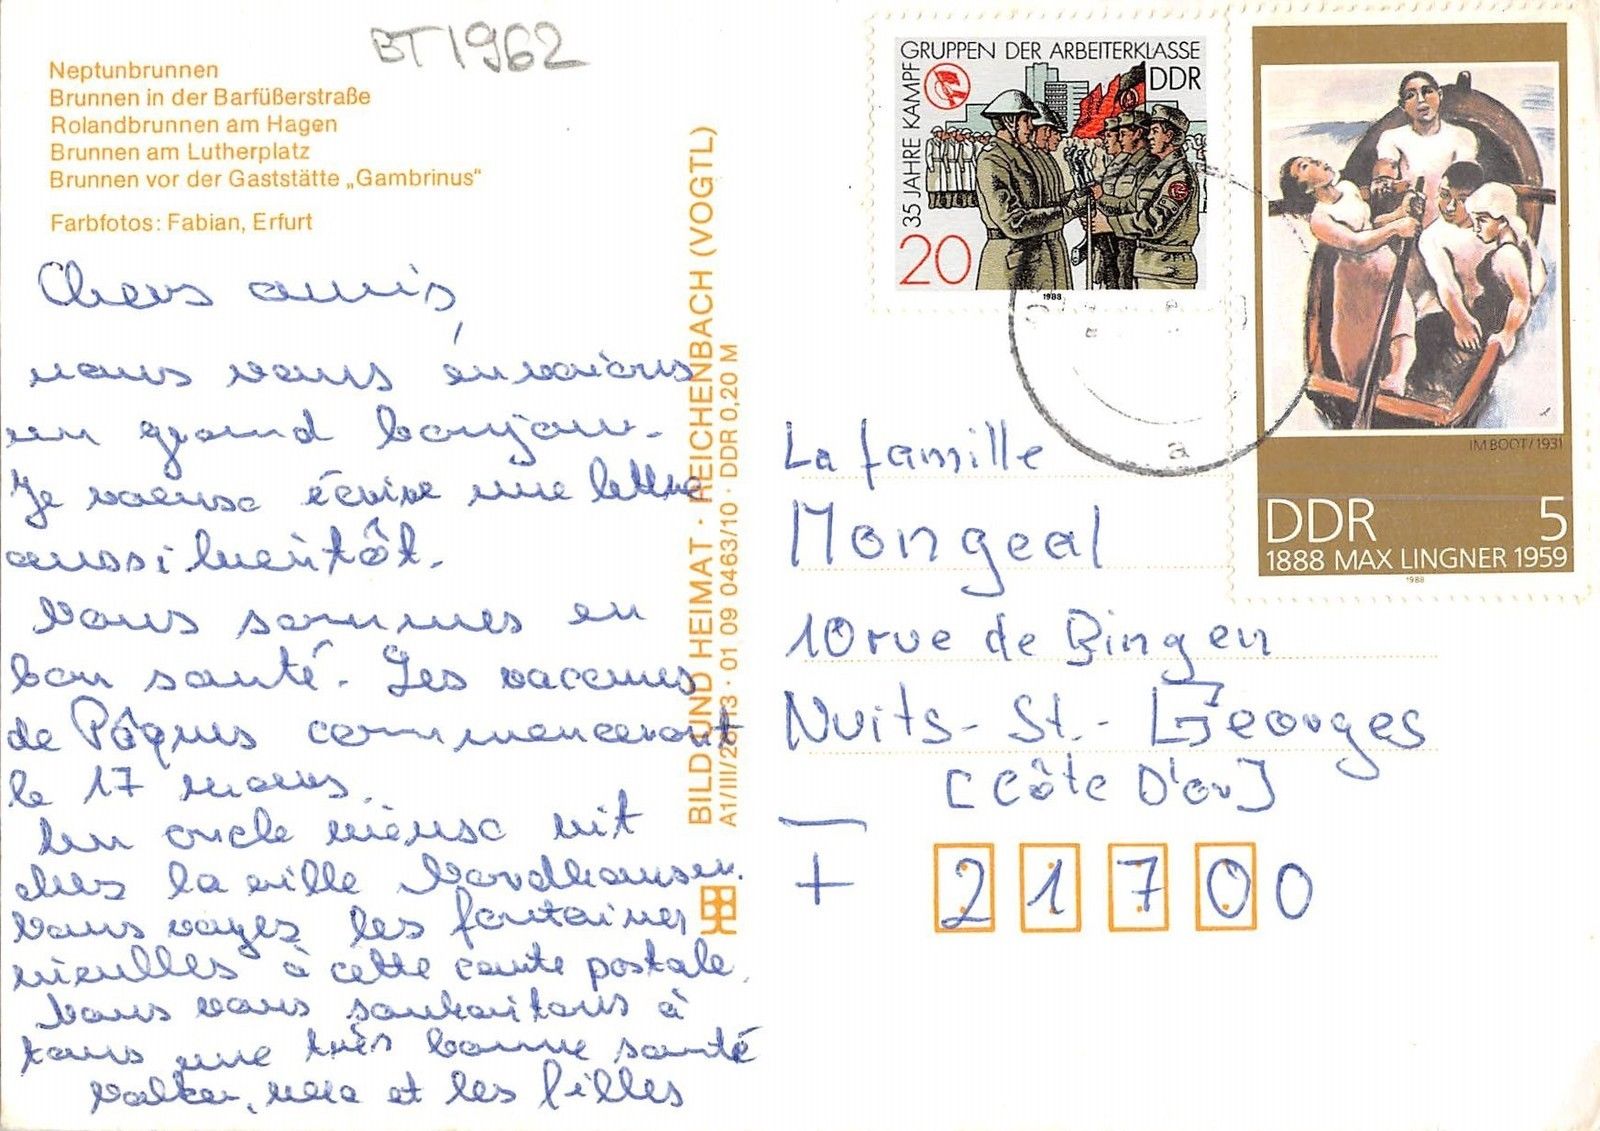 BT1962
Neptunbrunnen
Brunnen in der Barfüßerstraße
Rolandbrunnen am Hagen
Brunnen am Lutherplatz
Brunnen vor der Gaststätte „Gambrinus“
Farbfotos: Fabian, Erfurt
Chers amis,
nous vous envoions
un grand bonjour.
Je veux écrire une lettre
aussi bientôt.
Nous sommes en
bon santé. Les vacances
de Pâques commenceront
le 17 mars.
Un oncle vieux vit
chez la ville Nordhausen.
Vous voyez les fontaines
vieulles à cette carte postale.
Nous vous souhaitons à
tous une très bonne santé
et les filles
BILD UND HEIMAT · REICHENBACH (VOGTL)
A1/III/26/13 · 01 09 0463/10 · DDR 0,20 M
35 JAHRE KAMPFGRUPPEN DER ARBEITERKLASSE
DDR
20
1988
IM BOOT/1931
DDR 5
1888 MAX LINGNER 1959
1988
a
La famille
Mongeal
10 rue de Bingen
Nuits-St.-Georges
[Côte D'or]
+ 21700